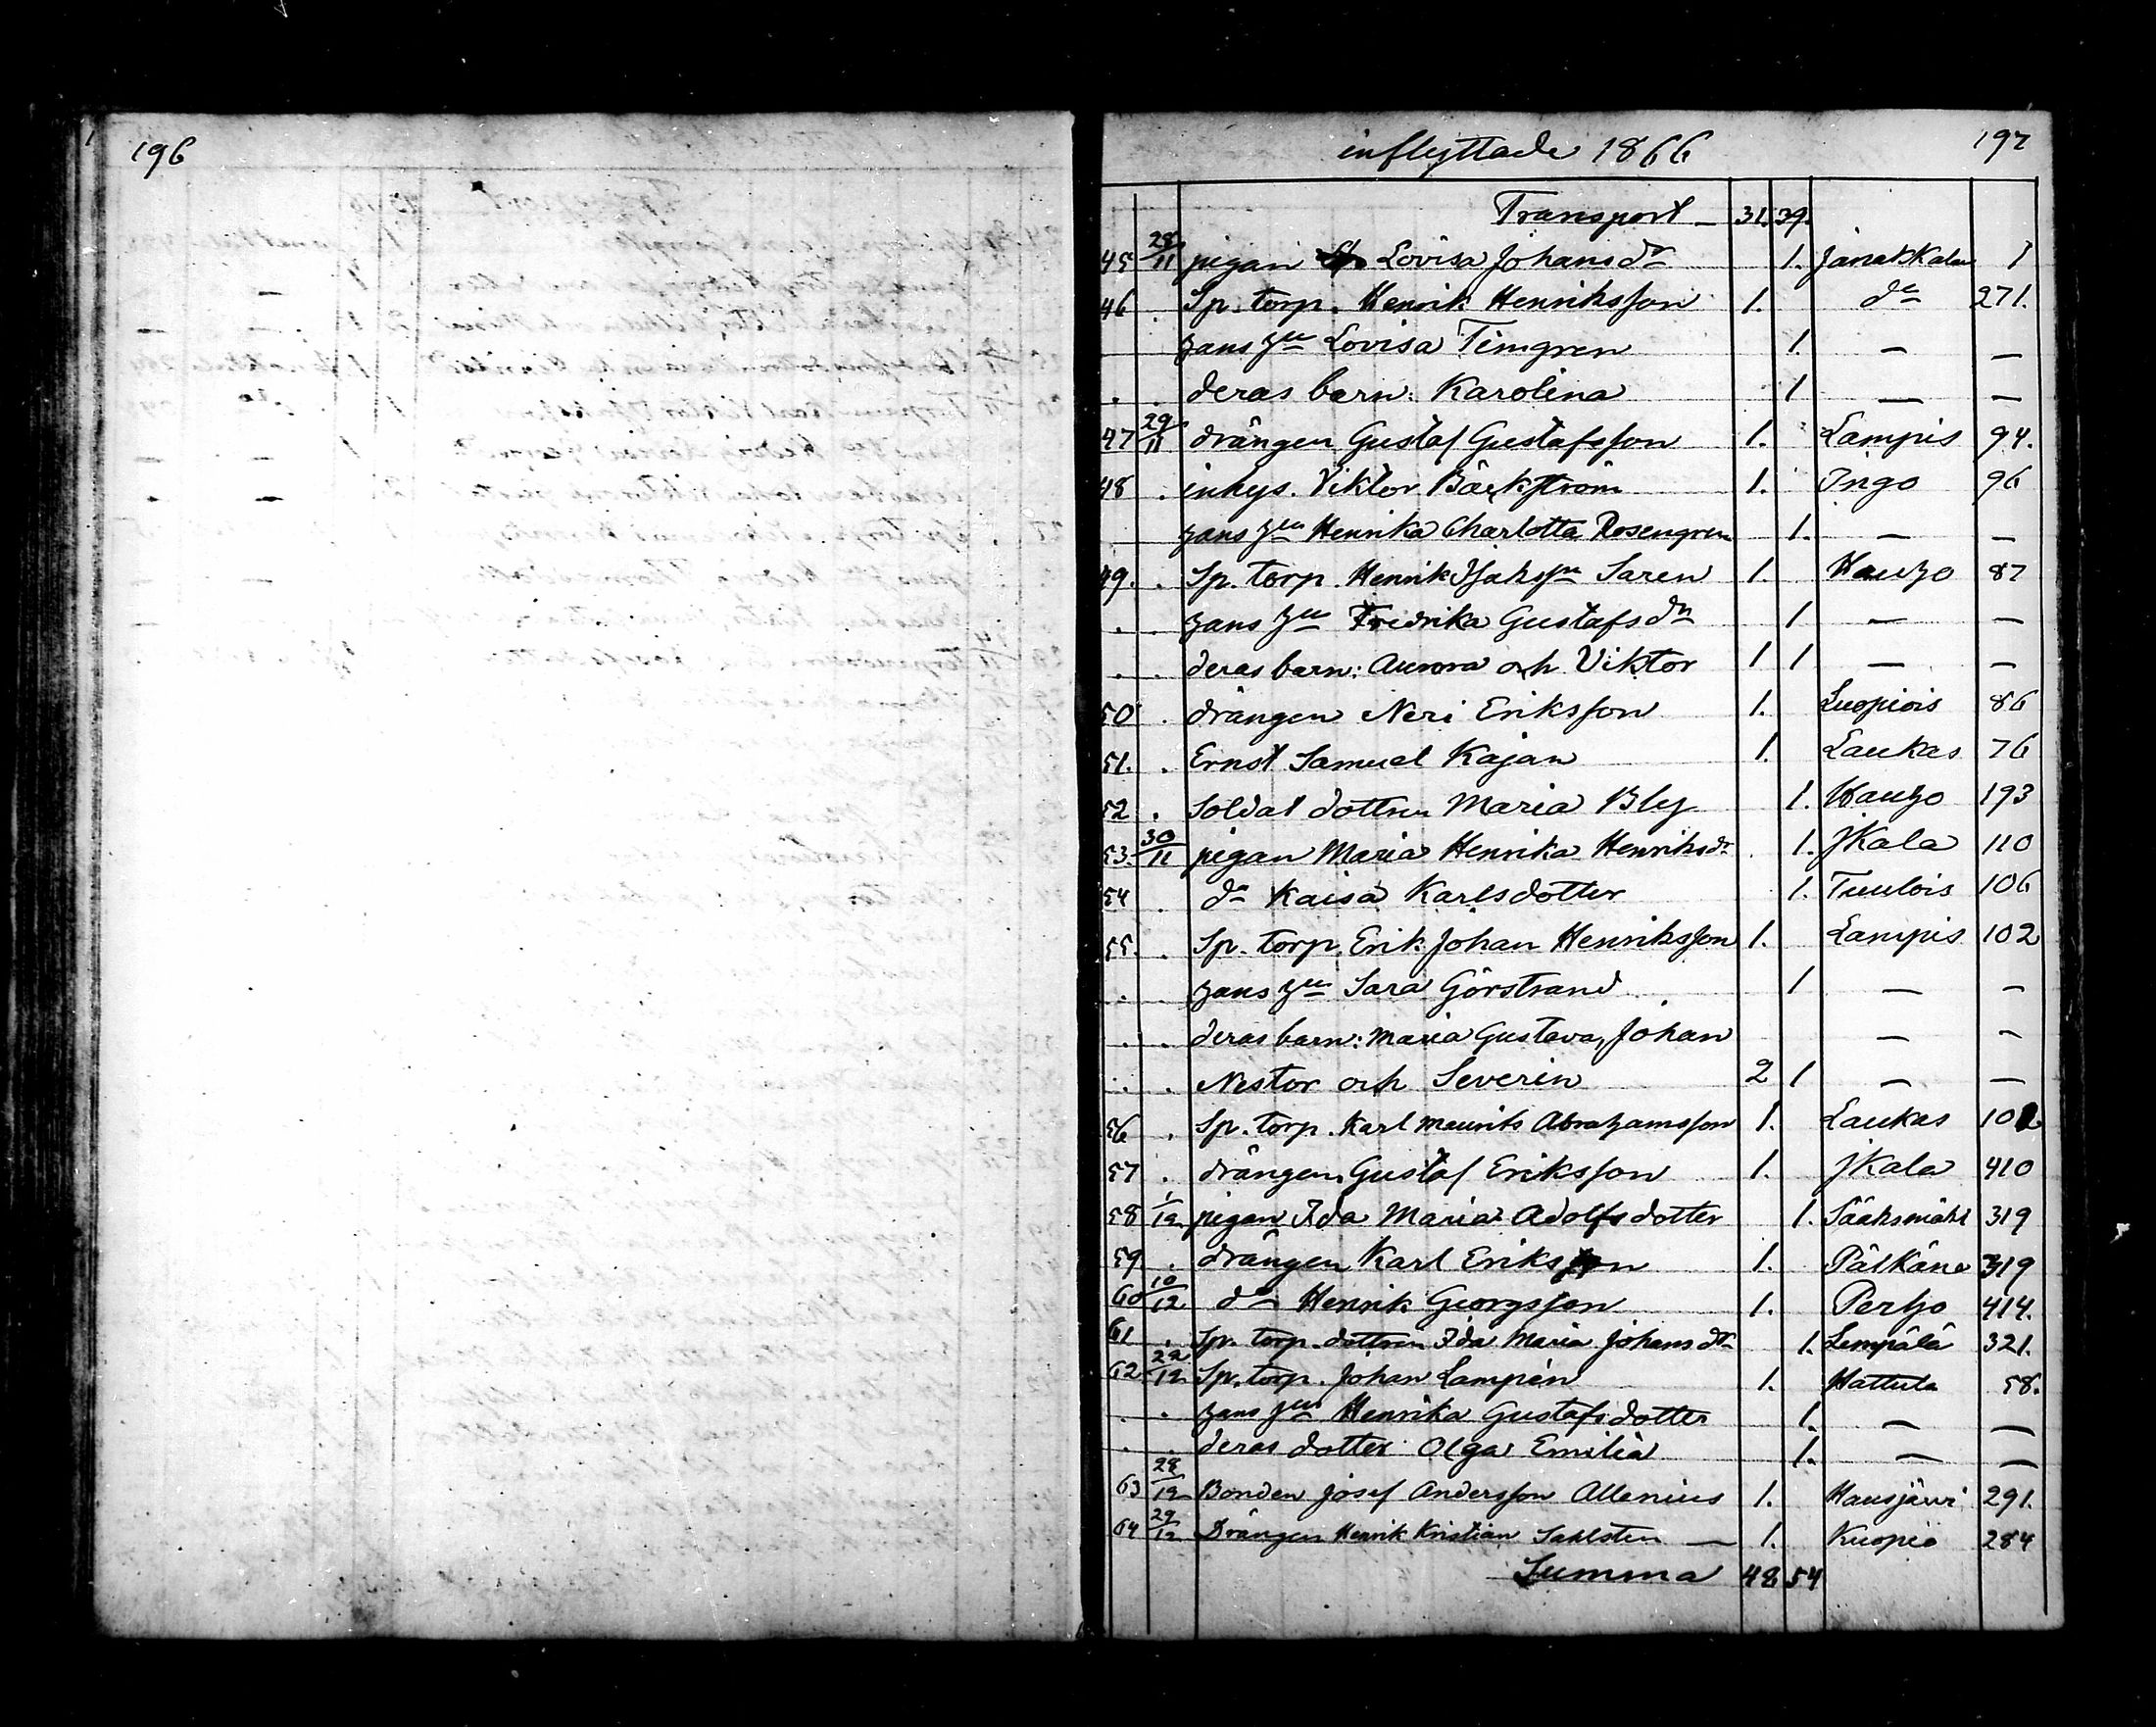 196
inflyttade 1866 197
Transport 31. 39.
45 28/11 pigan Lovisa Johansdr 1. Janakkala 1
46 . Sp. torp. Henrik Henriksson 1. do 271.
hans hu Lovisa Timgren 1. — —
. . deras barn: Karolina 1 — —
47 29/11 drängen Gustaf Gustafsson 1. Lampis 94.
48 . inhys. Viktor Bäckström 1. Ingo 96
hans hu Henrika Charlotta Rosengren 1. — —
49. . Sp. torp. Henrik Isakssn Saren 1. Hauho 87
. . hans hu Fredrika Gustafsdr 1 — —
. . deras barn: Aurora och Viktor 1 1 — —
50 . drängen Neri Eriksson 1. Luopiois 86
51. . Ernst Samuel Kajan 1. Laukas 76
52 . Soldat dottren Maria Bly 1. Hauho 193
53. 30/11 pigan Maria Henrika Henriksdr 1. JKala 110
54 . do Kaisa Karlsdotter 1. Tuulois 106
55. . Sp. torp. Erik Johan Henriksson 1. Lampis 102
. . hans hu Sara Görstrand 1 — —
. . deras barn: Maria Gustava, Johan — —
. . Nestor och Severin 2 1 — —
56 . Sp. torp. Karl Maurits Abrahamsson 1. Laukas 102
57 . drängen Gustaf Eriksson 1. JKala 410
58 1/12 pigan Ida Maria Adolfsdotter 1. Sääksmäki 319
59 . drängen Karl Eriksson 1. Pälkäne 319
60 10/12 do Henrik Georgsson 1. Pertjo 414.
61 . Sp. torp. dottren Ida Maria Johansdtr 1. Lempälä 321.
62 22/12 Sp. torp. Johan Lampén 1. Hattula 58.
. . hans hu Henrika Gustafsdotter 1. — —
. . deras dotter Olga Emilia 1. — —
63 28/12 Bonden Josef Andersson Allenius 1. Hausjärvi 291.
64 29/12 Drängen Henrik Kristian Sahlsten — 1. Kuopio 284
Summa 48 54